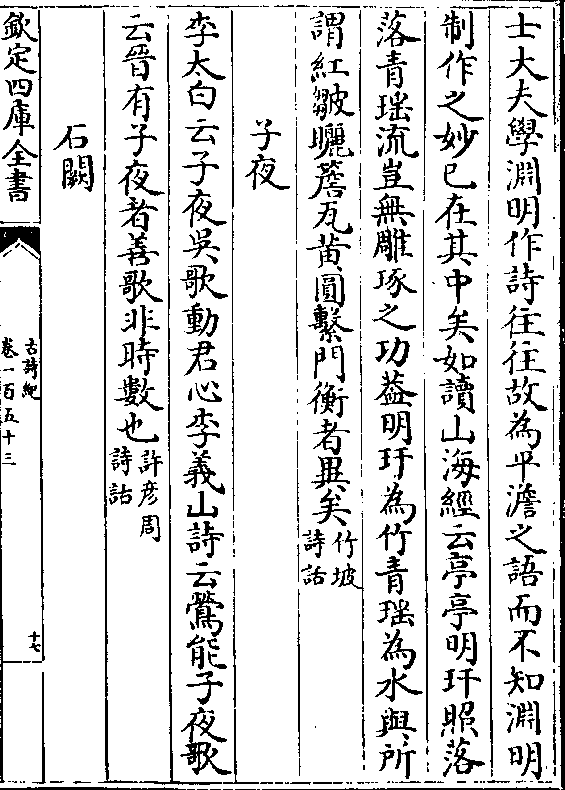 士大夫學淵明作詩往往故為平澹之語而不知淵明
制作之妙已在其中矣如讀山海經云亭亭明玕照落
落青瑤流豈無雕琢之功葢明玕為竹青瑤為水與所
謂紅皺曬簷瓦黄圓繫門衡者異矣竹坡詩話
子夜
李太白云子夜吳歌動君心李義山詩云鶯能子夜歌
云晉有子夜者善歌非時數也許彦周詩話
石闕
欽定四庫全書
古詩紀
卷一百五十三
十七